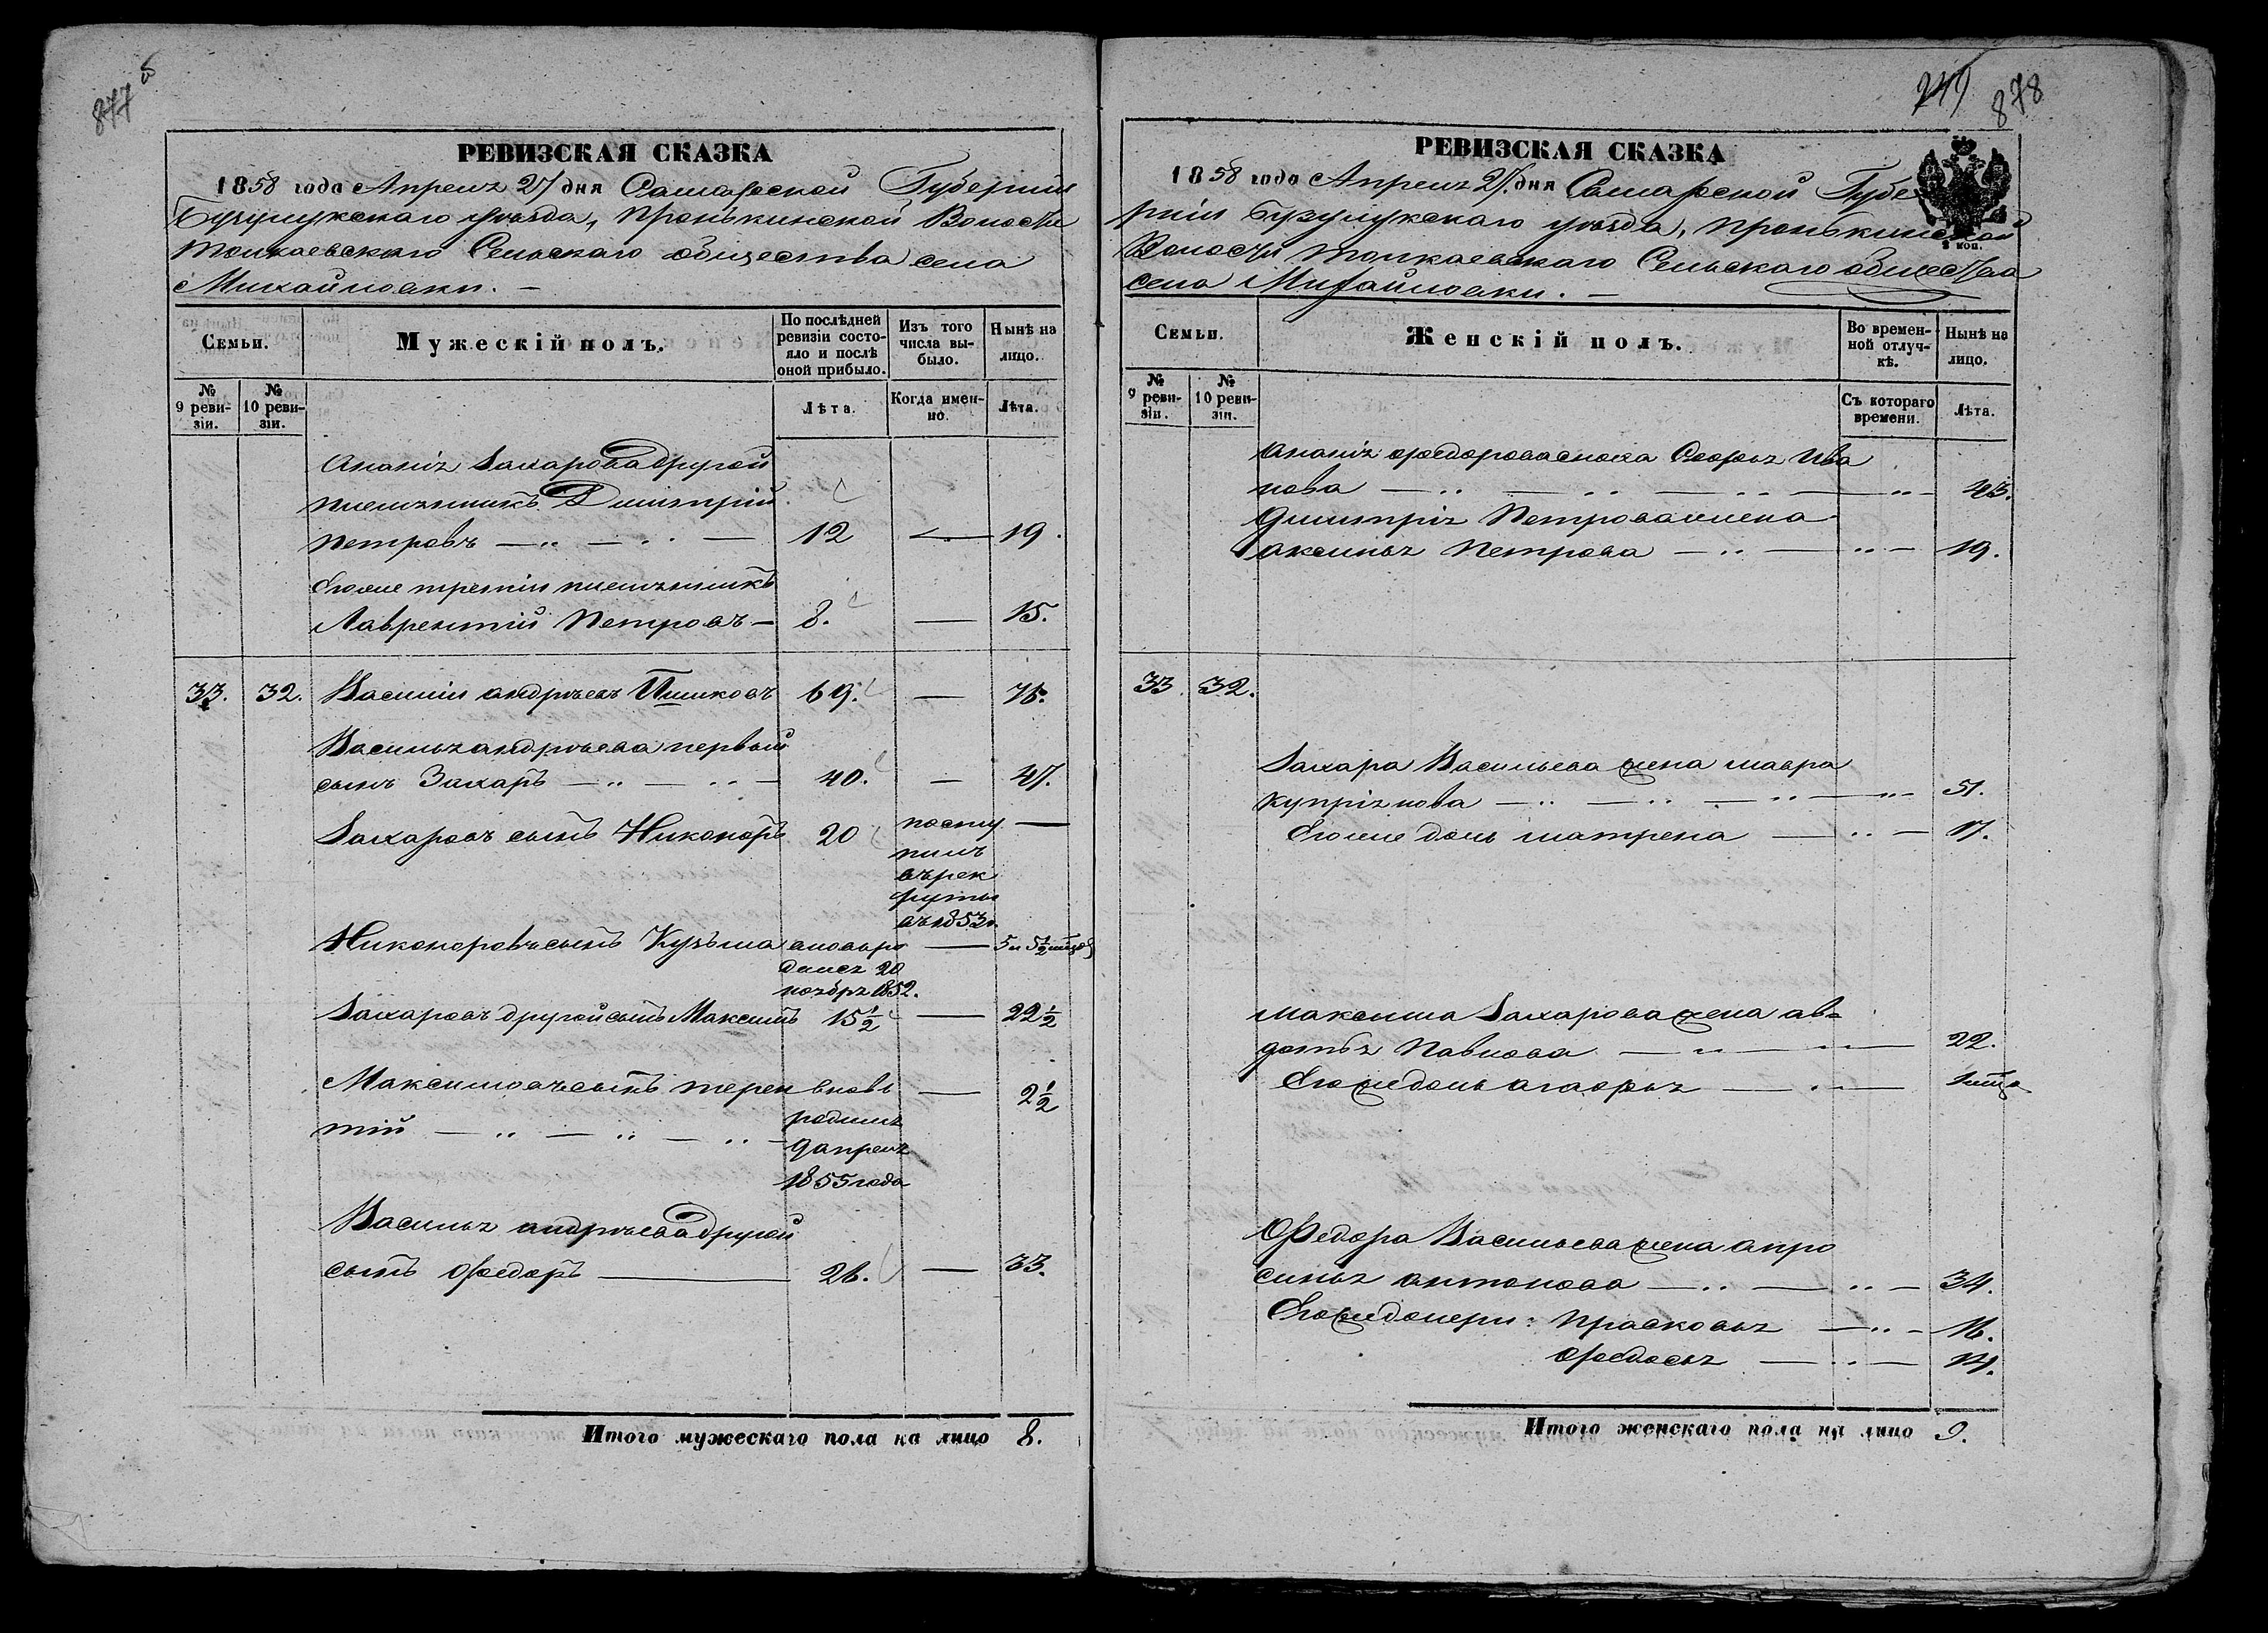 877 б
РЕВИЗСКАЯ СКАЗКА
1858 года Апреля 27 дня Самарской Губернии
Бузулукскаго уѣзда, Пронькинской Волости
Толкаевскаго Сельскаго общества села
Михайловки. —
Семьи.
Мужескій полъ.
По послѣдней ревизіи состояло и послѣ оной прибыло.
Изъ того числа выбыло.
Нынѣ на лицо.
№ 9 ревизіи.
№ 10 ревизіи.
Лѣта.
Когда именно.
Лѣта.
Ананія Захарова другой
племянникъ Дмитрій
Петровъ — 12 — 19.
Егоже третій племянникъ
Лаврентій Петровъ — 8. — 15.
33. 32. Василій Андрѣевъ 69. — 75.
Василья Андрѣева первый
сынъ Захаръ — 40. — 47.
Захаровъ сынъ Никоноръ 20 посту —
пилъ
въ рек
руты
въ 1853 г.
Никоноровъ сынъ Кузьма вновь ро — 5 и 5½ мѣся
дился 20
ноября 1852.
Захаровъ другой сынъ Максимъ 15½ — 22½
Максимовъ сынъ Терен вновь — 2½
тій — родился
9 апреля
1855 года
Василья Андрѣева другой
сынъ Федоръ — 26. — 33.
Итого мужескаго пола на лицо 8.
249 878
РЕВИЗСКАЯ СКАЗКА
1858 года Апреля 27. дня Самарской Губе
рніи Бузулукскаго уѣзда, Пронькинской
Волости Толкаевскаго Сельскаго общества
села Михайловки. —
коп.
Семьи.
Женскій полъ.
Во временной отлучкѣ.
Нынѣ на лицо.
№ 9 ревизіи.
№ 10 ревизіи.
Съ котораго времени.
Лѣта.
Ананія Федорова сноха Софья Ива
нова — 43.
Дмитрія Петрова жена
Аксинья Петрова — 19.
33. 32.
Захара Васильева жена Мавра
Купріянова — 51.
Егоже дочь Матрена — 17.
Максима Захарова жена Ав=
дотья Павлова — 22.
Егоже дочь Агафья —
Федора Васильева жена Апро
синья Антонова — 34.
Егоже дочери: Прасковья — 16.
Федосья — 14.
Итого женскаго пола на лицо 9.